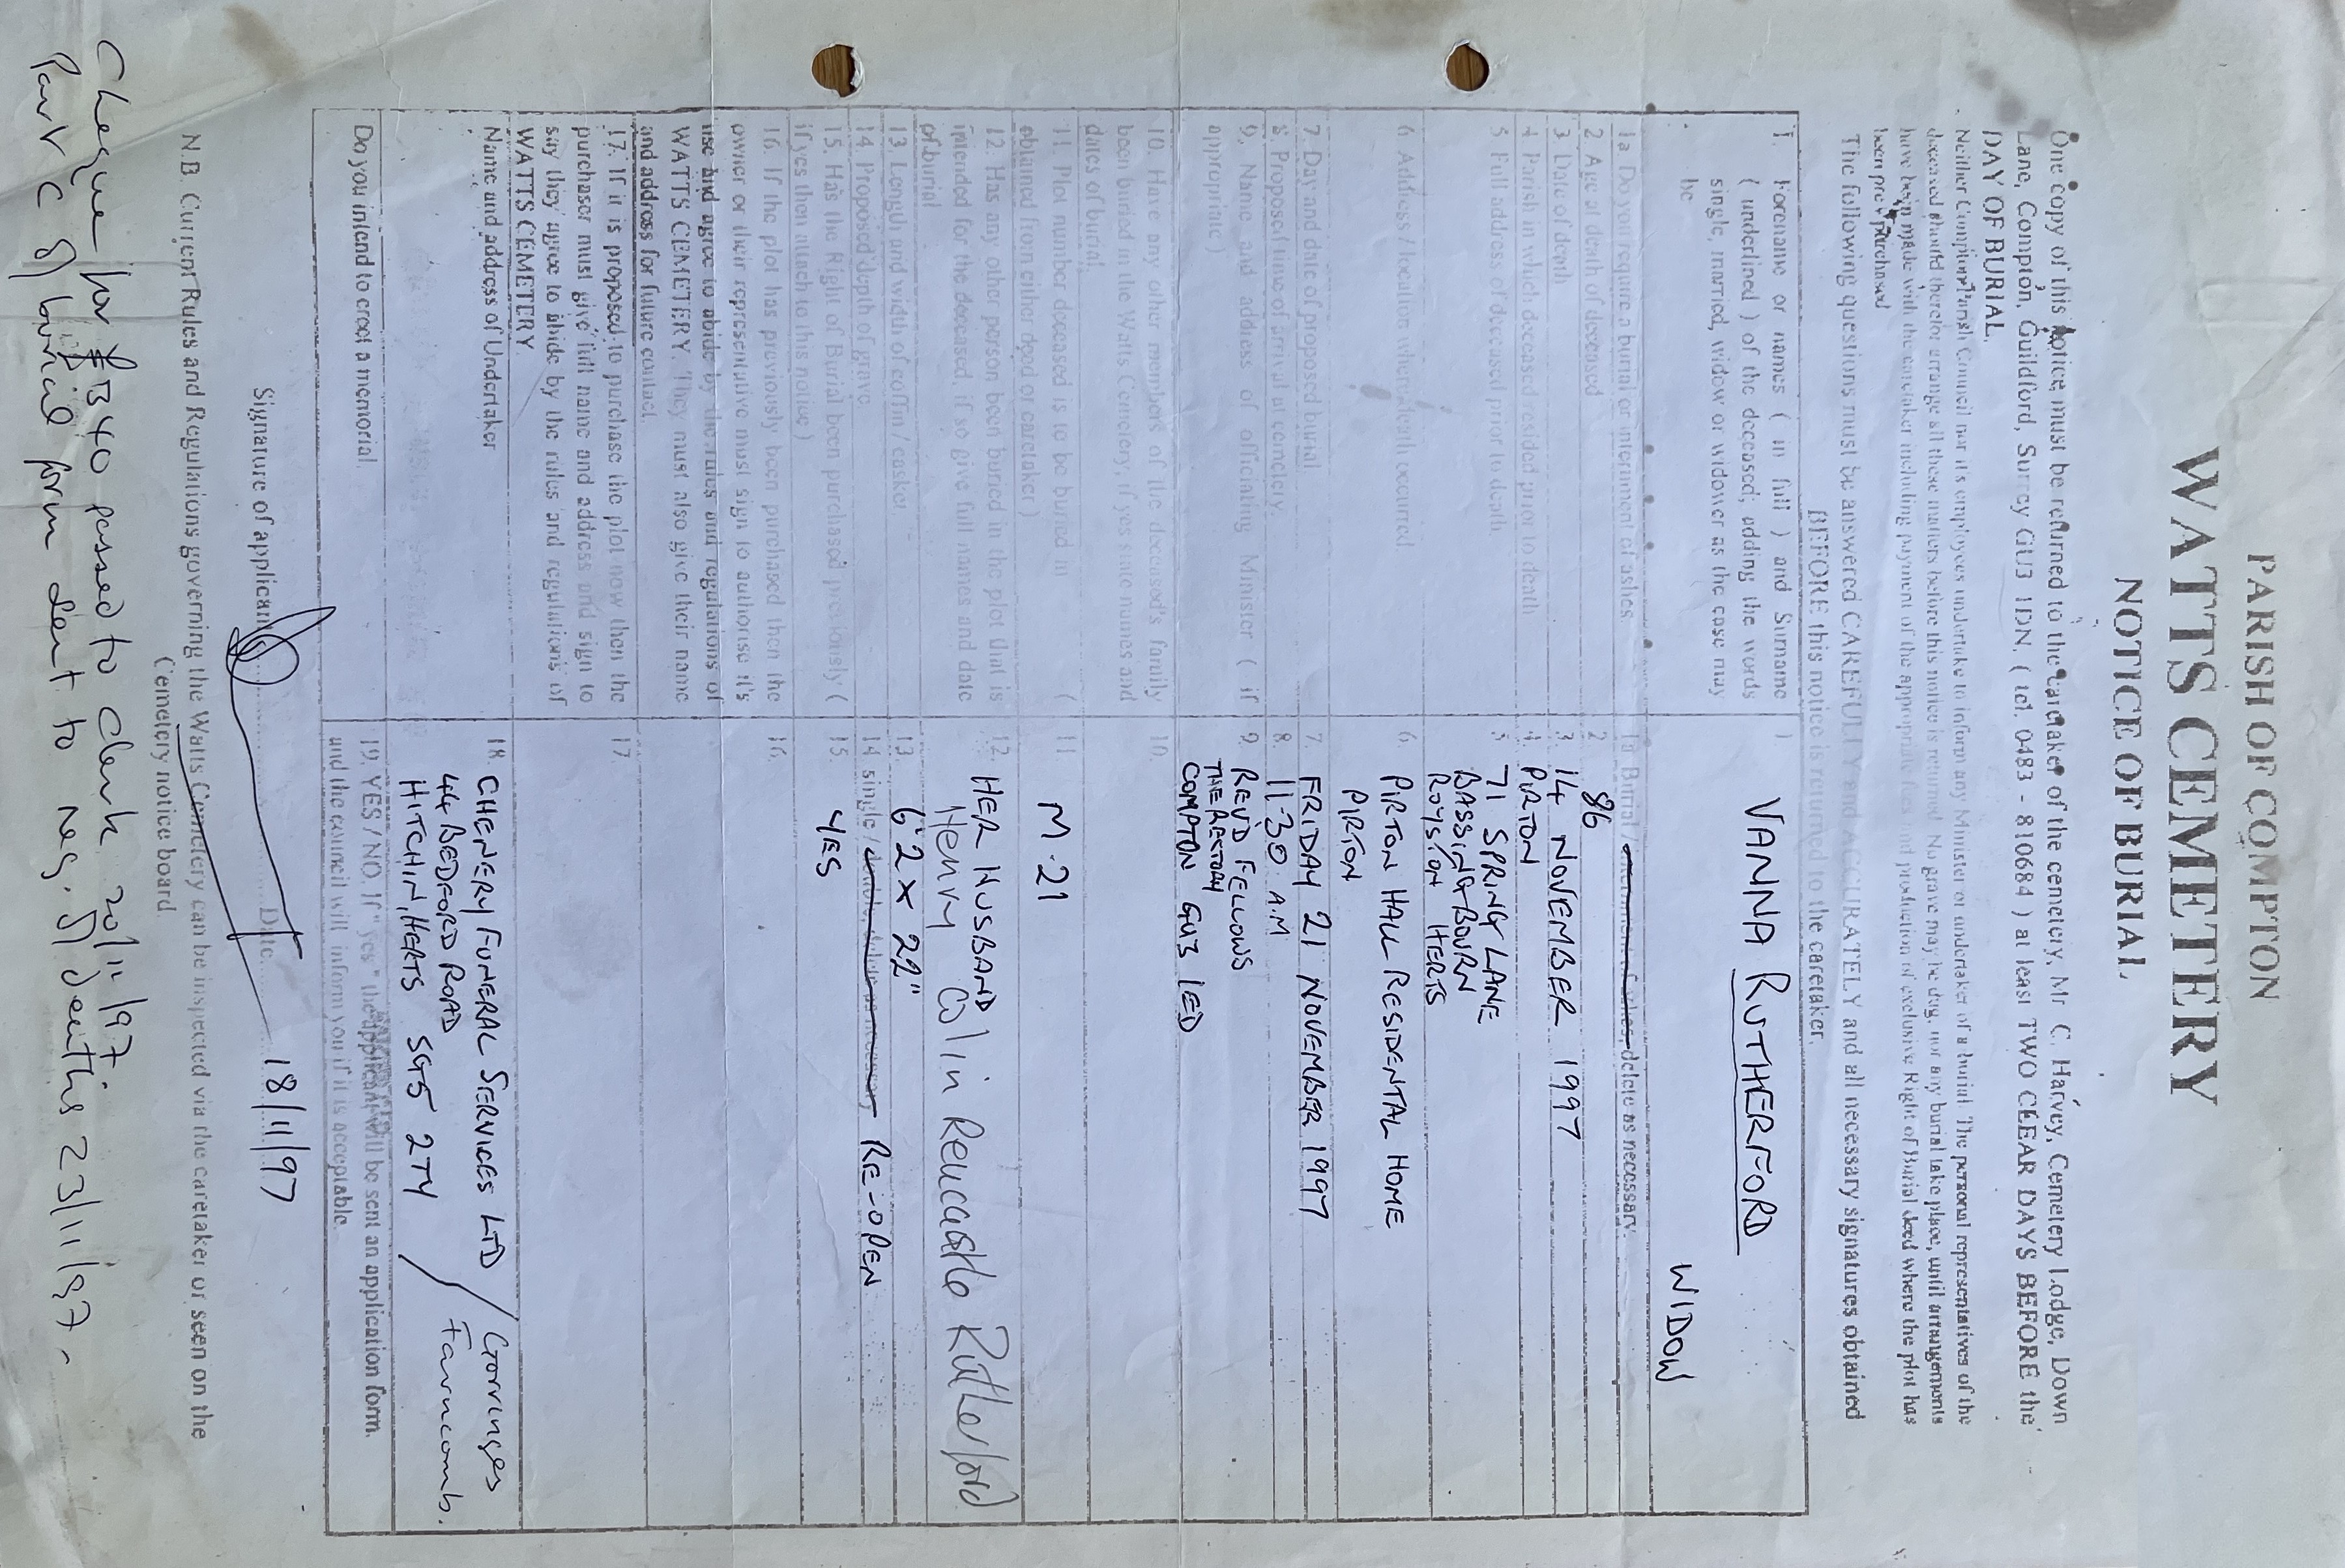 PARISH OF COMPTON
WATTS CEMETERY
NOTICE OF BURIAL
One copy of this Notice must be returned to the caretaker of the cemetery, Mr C. Harvey, Cemetery Lodge, Down
Lane, Compton, Guildford, Surrey GU3 1DN. ( tel. 0483 - 810684 ) at least TWO CLEAR DAYS BEFORE the
DAY OF BURIAL.
Neither Compton Parish Council nor it's employees undertake to inform any Minister or undertaker of a burial. The personal representatives of the
deceased should therefor arrange all these matters before this notice is returned. No grave may be dug, nor any burial take place, until arrangements
have been made with the caretaker including payment of the appropriate and production of exclusive Right of Burial deed where the plot has
been pre purchased
The following questions must be answered CAREFULLY and ACCURATELY and all necessary signatures obtained
BEFORE this notice is returned to the caretaker.
1. Forename or names ( in full ) and Surname
( underlined ) of the deceased; adding the words
single, married, widow or widower as the case may
be
1
VANNA RUTHERFORD
WIDOW
1a Do you require a burial or internment of ashes
1a Burial / internment of ashes, delete as necessary.
2 Age at death of deceased
2 86
3 Date of death
3. 14 NOVEMBER 1997
4 Parish in which deceased resided prior to death
4. PIRTON
5 Full address of deceased prior to death
5 71 SPRING LANE
BASSINGBOURN
ROYSTON HERTS
6 Address / location where death occurred
6. PIRTON HALL RESIDENTAL HOME
PIRTON
7 Day and date of proposed burial
7. FRIDAY 21 NOVEMBER 1997
8 Proposed time of arrival at cemetery.
8. 11-30 A.M
9. Name and address of officiating Minister ( if
appropriate )
9. REVD FELLOWS
THE RECTORY
COMPTON GU3 1ED
10. Have any other members of the deceased's family
been buried in the Watts Cemetery, if yes state names and
dates of burial
10.
11. Plot number deceased is to be buried in (
obtained from either deed or caretaker )
11 M-21
12. Has any other person been buried in the plot that is
intended for the deceased, if so give full names and date
of burial
12. HER HUSBAND
Henry Colin Rutherford
13 Length and width of coffin / casket
13. 6'2 x 22"
14 Proposed depth of grave
14 single / double delete as necessary RE-OPEN
15. Has the Right of Burial been purchased previously (
if yes then attach to this notice )
15. YES
16. If the plot has previously been purchased then the
owner or their representative must sign to authorise it's
use and agree to abide by the rules and regulations of
WATTS CEMETERY. They must also give their name
and address for future contact.
16.
17. If it is proposed to purchase the plot now then the
purchaser must give full name and address and sign to
say they agree to abide by the rules and regulations of
WATTS CEMETERY
17.
Name and address of Undertaker
18. CHENERY FUNERAL SERVICES LTD / Gorringes
44 BEDFORD ROAD
HITCHIN, HERTS SG5 2TY / Farncomb.
Do you intend to erect a memorial.
19. YES / NO. If " yes " the applicant will be sent an application form.
and the council will inform you if it is acceptable.
Signature of applicant Date 18/11/97
N.B. Current Rules and Regulations governing the Watts Cemetery can be inspected via the caretaker or seen on the
Cemetery notice board
Cheque for £340 passed to clerk 20/11/97.
Part C of burial form sent to reg. of deaths 23/11/97.